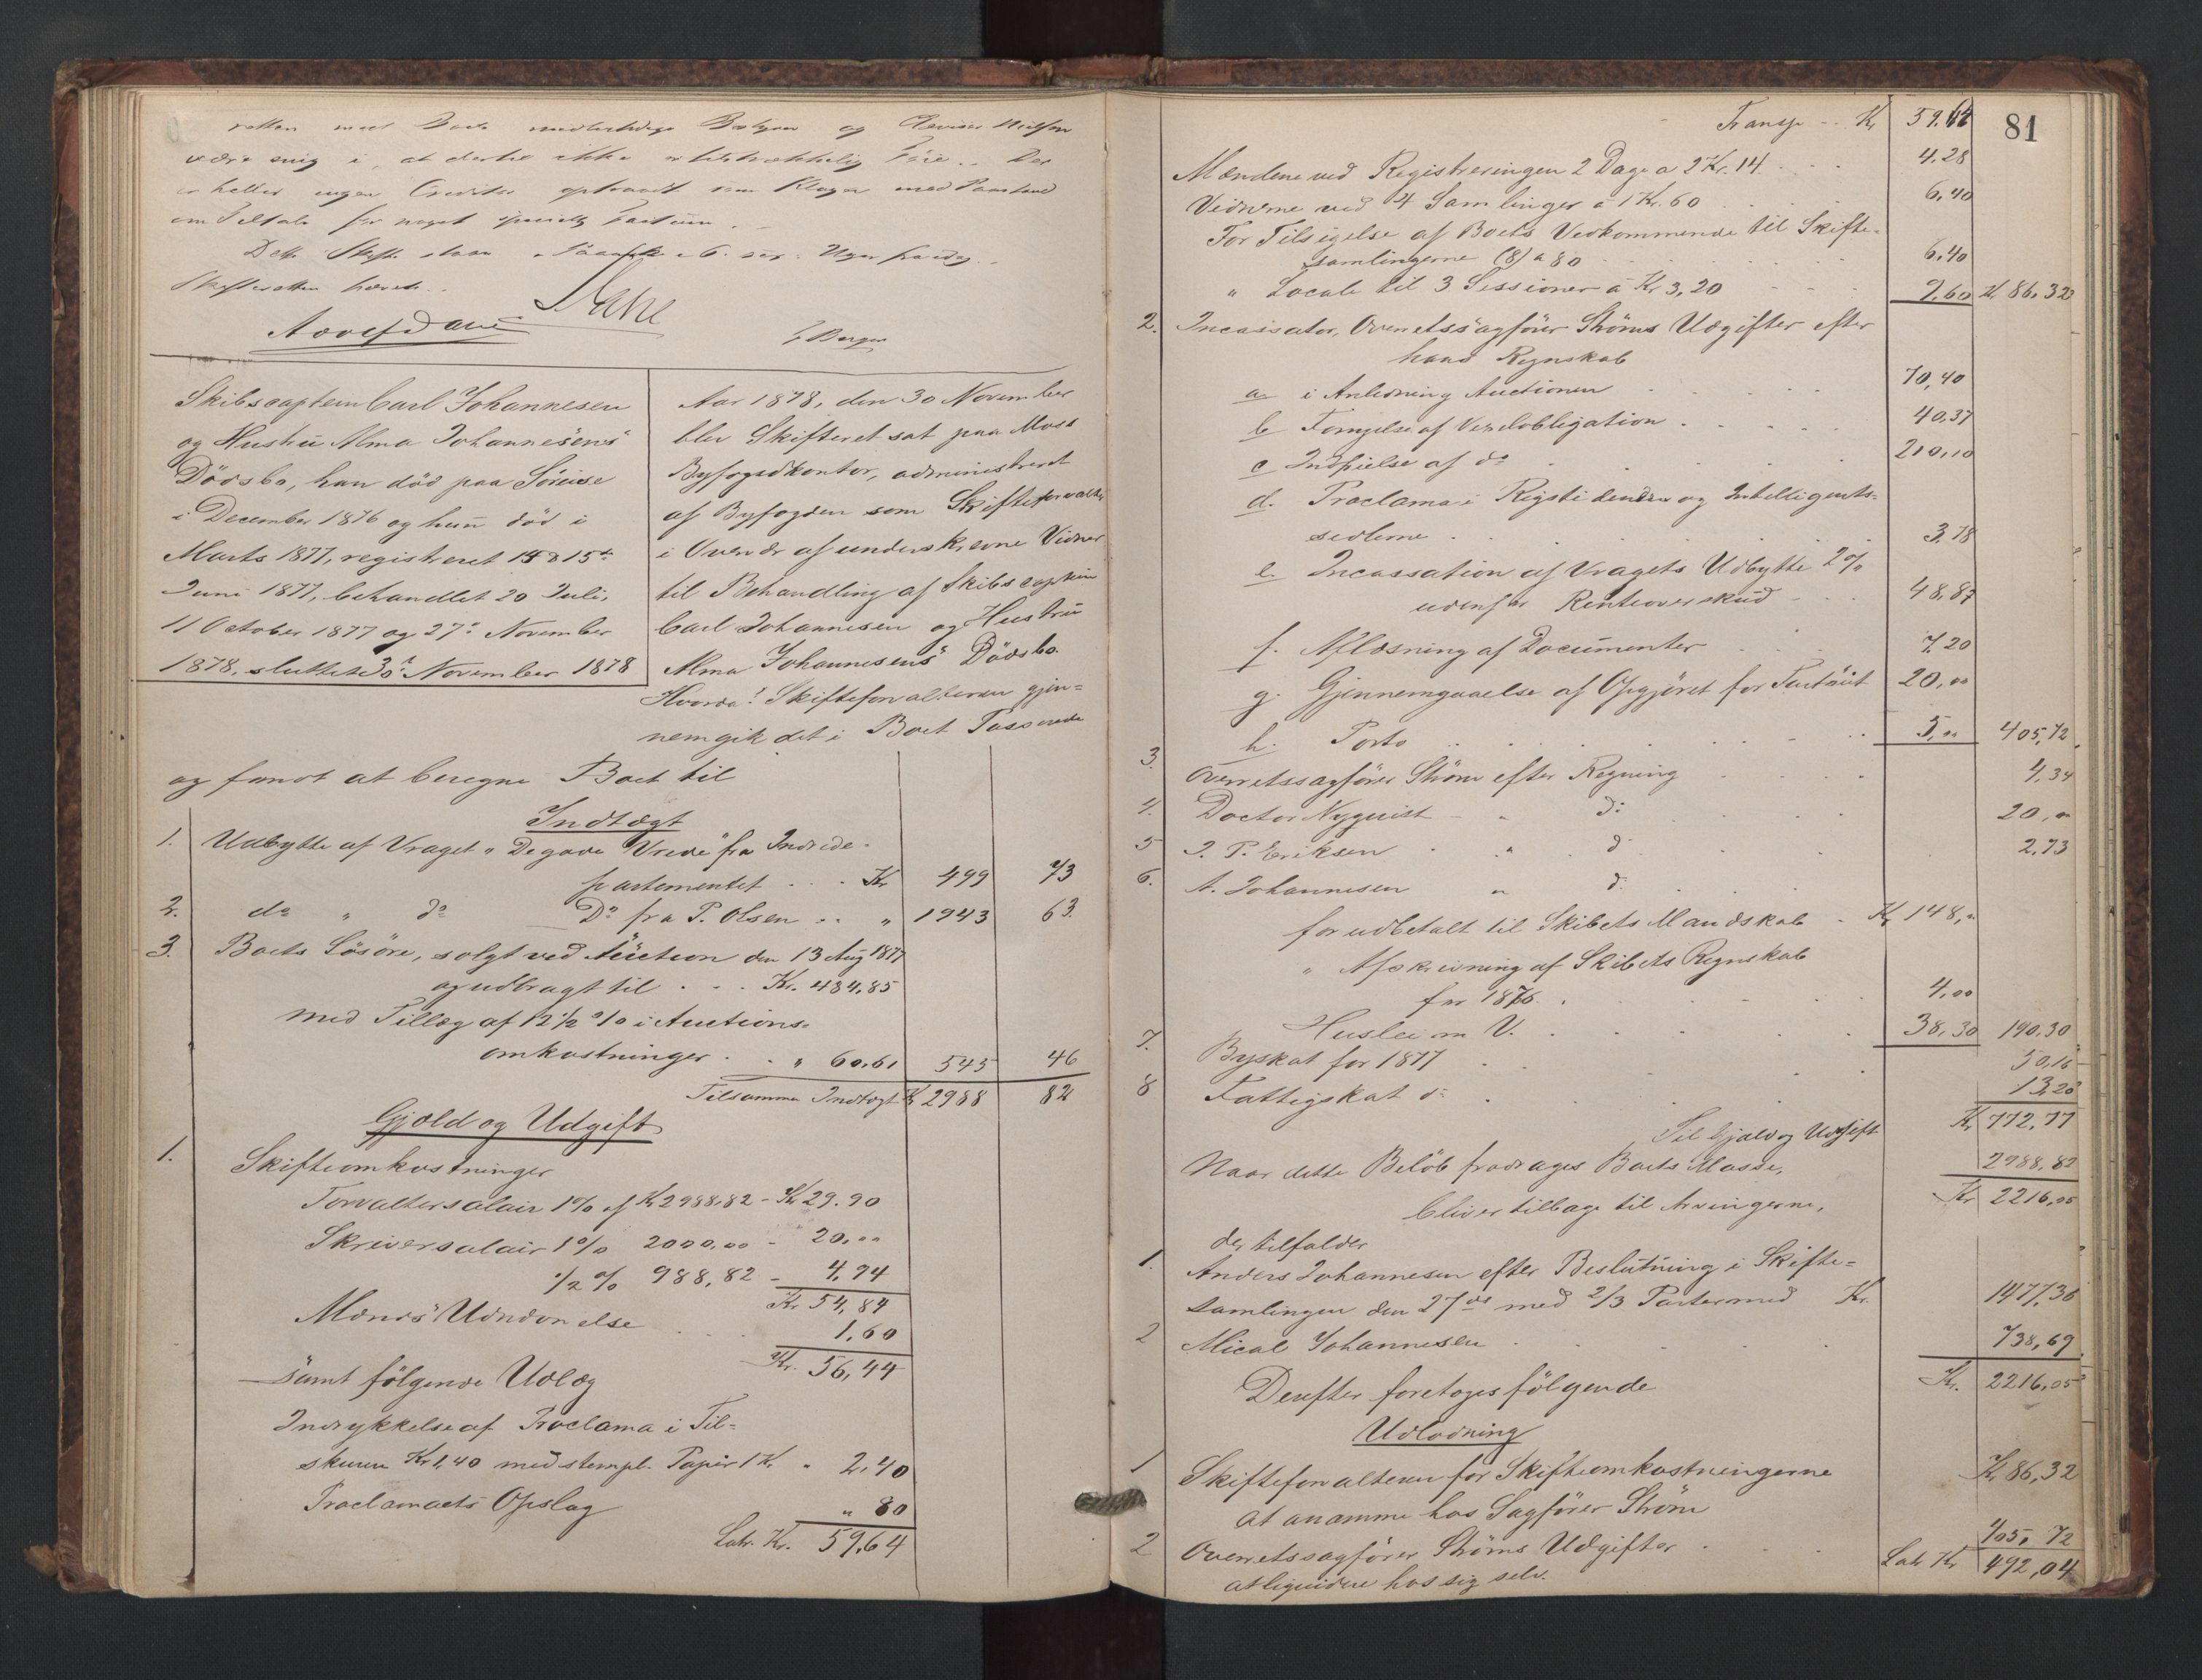 retten med Boets
være enig i, at dertil ikke er tilstrækkelig Føie. Der
er heller ingen Creditor optraadt som Klager med Paastand
om Tiltale for noget specielt Factum.
Dette Skifte staar
Skifteretten hævet.
Skibscaptein Carl Johannesen
og Hustru Alma Johannesens
Dödsbo, han död paa Söreise
i December 1876 og hun död i
Marts 1877, registreret 15 d 15de
Juni 1877, behandlet 20 Juli,
11 October 1877 og 27de November
1878, sluttet 30te November 1878
Aar 1878, den 30 November
blev Skifteret sat paa Moss
Byfogedkontor, administreret
af Byfogden som Skifteforvalter
i Overvær af underskrevne Vidner
til Behandling af Skibscaptein
Carl Johannesen og Hustru
Alma Johannesens Dödsbo.
Hvorda: Skifteforvalteren gjen=
nemgik det i Boet Passerede
og fandt at beregne Boet til
Indtægt
1. Udbytte af Vraget "De gode Vrede" fra Indrede=
partementet . . . Kr 499 73
2. do " do Do fra P. Olsen .. " 1943 63.
3. Boets Lösöre, solgt ved Auction den 13 Aug 1877
og udbragt til . . . Kr. 484,85
med Tillæg af 12 1/2 % i Auctions=
omkostninger . . " 60,61 545 46
Tilsammen Indtægt Kr 2988 82
Gjæld og Udgift
1. Skifteomkostninger
Forvaltersalair 1% af Kr 2988,82 - Kr 29.90
Skriversalair 1% 2000,00 - 20,00
1/2 % 988,82 - 4,94
Kr. 54,84
Mænds Udnævnelse . . . 1,60
Kr. 56,44
samt fölgende Udlæg
Indrykkelse af Proclama i Til=
skuern Kr 1,40 med stempl. Papir 1 Kr. " 2,40
Proclamaets Opslag " 80
Latr. Kr. 59,64
81
Transp -- Kr 59.64
Mændene ved Registreringen 2 Dage a 2 Kr. 14 . . . 4,28
Vidnerne ved 4 Samlinger á 1 Kr. 60 . . . 6,40
For Tilsigelse af Boets Vedkommende til Skifte=
samlingerne (8) a 80 . . . 6,40
" Locale til 3 Sessioner á Kr 3,20 - - - 9,60 Kr 86,32
2. Incassator, Overretssagförer Ströms Udgifter efter
hans Regnskab
a. i Anledning Auctionen . . . 70,40
b Fornyelse af Vexelobligation . . . 40,37
c Indfrielse af do . . . 210,10
d. Proclama i Rigstidenden og Intelligents=
sedlerne . . . 3,78
e. Incassation af Vragets Udbytte 2%
udenfor Renteoverskud - . . 48,87
f. Aflæsning af Documenter . . . 7,20
g. Gjennemgaaelse af Opgjöret for Fartöiet 20,00
h. Porto . . . 5,00 405,72
3. Overretssagförer Ström efter Regning . . . 4,34
4. Doctor Nyquist - " do . . . 20,00
5 J. P. Eriksen . " . do . . . 2,73
6. A. Johannesen " do . . .
for udbetalt til Skibets Mandskab - Kr 148,00
" Afskrivning af Skibets Regnskab
for 1876 . . . 4,00
Husleie m V. . . . 38,30 190.30
7. Byskat for 1877 . . . 50,16
8 Fattigskat do . . . 13,20
Til Gjæld og Udgift Kr 772,77
Naar dette Belöb fradrages Boets Masse, 2988,82
bliver tilbage til Arvingerne, Kr 2216,05
der tilfalder
1. Anders Johannesen efter Beslutning i Skifte=
samlingen den 27de med 2/3 Parter med Kr. 1477,36
2 Mical Johannesen . . . 738,69
Kr. 2216,05
Derefter foretoges fölgende
Udlodning
1 Skifteforvalteren for Skifteomkostningerne Kr 86,32
at anamme hos Sagförer Ström
2 Overretssagförer Ströms Udgifter . . . 405,72
at liqvidere hos sig selv. Latr Kr 492,04